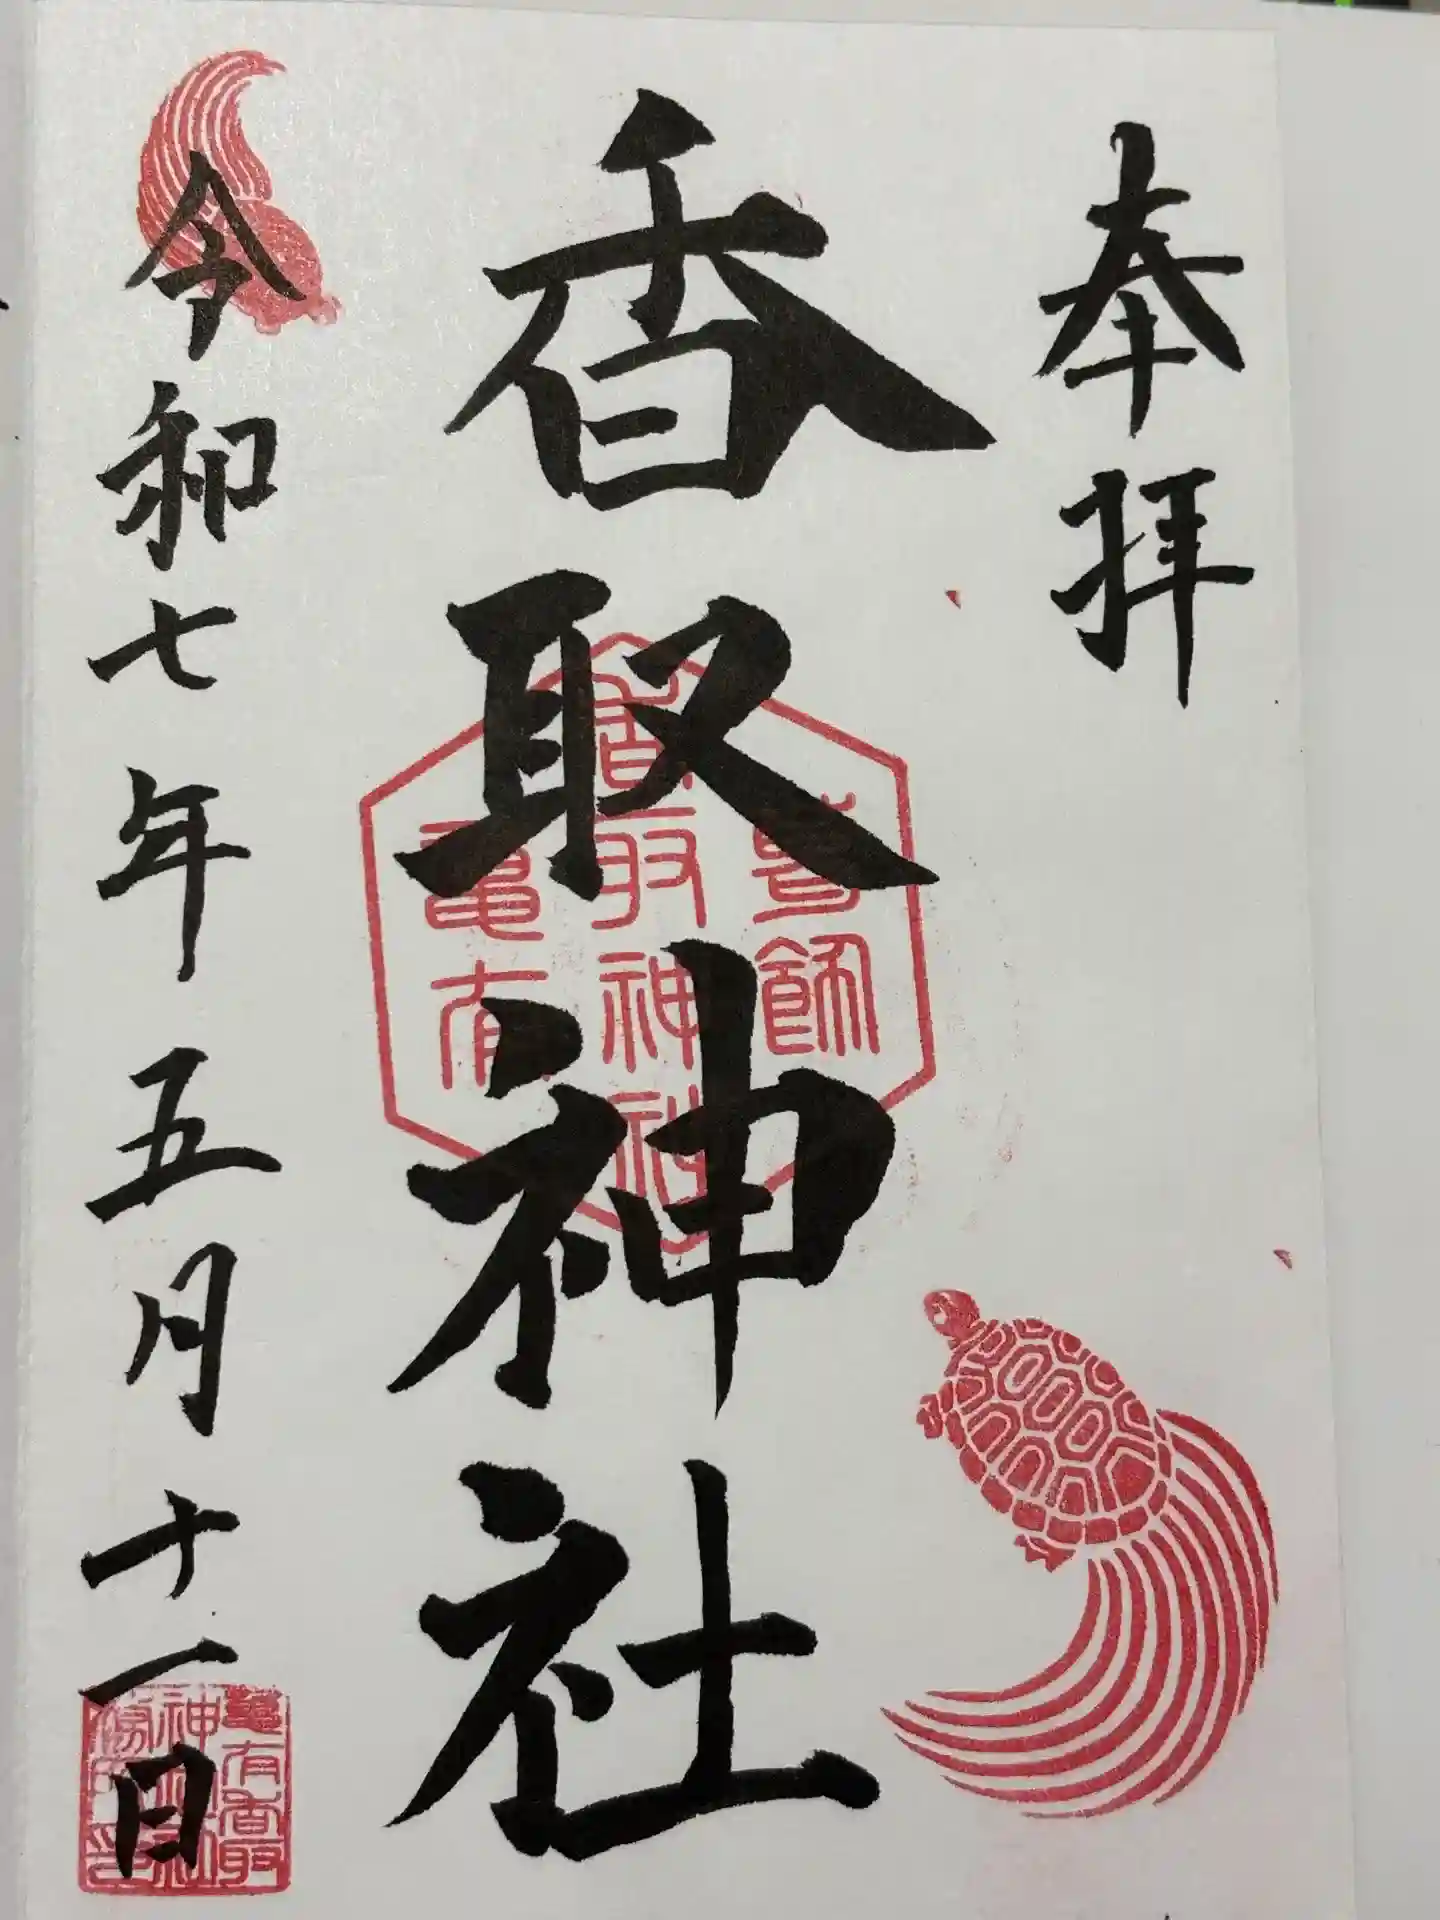 奉拝
香取神社
葛飾
香取神社
亀有
令和七年五月十一日
亀有香取
神社